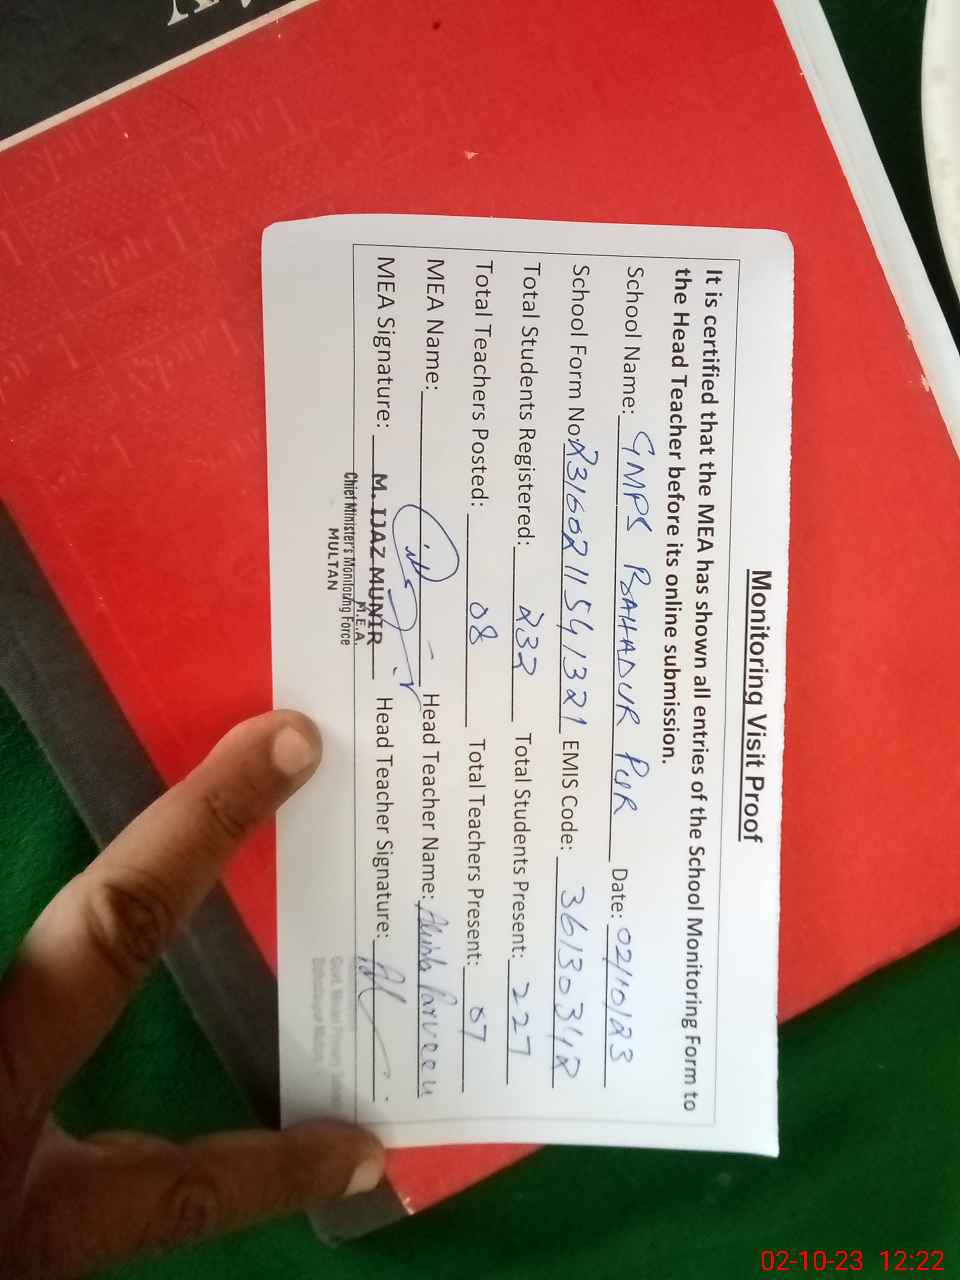 Monitoring Visit Proof
It is certified that the MEA has shown all entries of the School Monitoring Form to
the Head Teacher before its online submission.
School Name: GMPS BAHADUR PUR Date: 02/10/23
School Form No: 231602115541321 EMIS Code: 36130312
Total Students Registered: 232 Total Students Present: 227
Total Teachers Posted: 08 Total Teachers Present: 07
MEA Name: Head Teacher Name: Parveen
MEA Signature: Head Teacher Signature:
M. IJAZ MUNIR
M.E.A.
Chief Minister's Monitoring Force
MULTAN
02-10-23 12:22